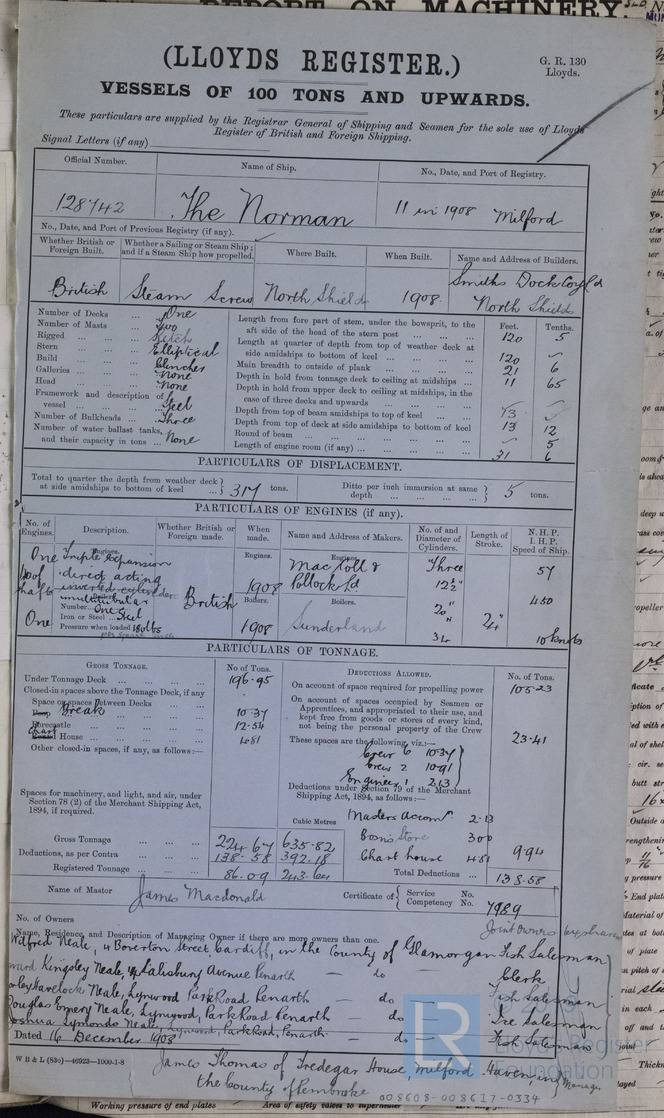 REPORT ON MACHINERY.
(LLOYDS REGISTER.)
G. R. 130
Lloyds.
VESSELS OF 100 TONS AND UPWARDS.
These particulars are supplied by the Registrar General of Shipping and Seamen for the sole use of Lloyds
Register of British and Foreign Shipping.
Signal Letters (if any)
Official Number. Name of Ship. No., Date, and Port of Registry.
128742 The Norman 11 in 1908 Milford
No., Date, and Port of Previous Registry (if any).
Whether British or Foreign Built. Whether a Sailing or Steam Ship; and if a Steam Ship how propelled. Where Built. When Built. Name and Address of Builders.
British Steam Screw North Shields 1908. Smiths Dock Coy Ld North Shields
Number of Decks ... One
Number of Masts ... Two
Rigged ... Ketch
Stern ... Elliptical
Build ... Clencher
Galleries ... None
Head ... None
Framework and description of vessel ... Steel
Number of Bulkheads ... Three
Number of water ballast tanks, and their capacity in tons ... None
Feet. Tenths.
Length from fore part of stem, under the bowsprit, to the aft side of the head of the stern post ... 120 5
Length at quarter of depth from top of weather deck at side amidships to bottom of keel ... 120
Main breadth to outside of plank ... 21 6
Depth in hold from tonnage deck to ceiling at midships ... 11 65
Depth in hold from upper deck to ceiling at midships, in the case of three decks and upwards ...
Depth from top of beam amidships to top of keel ...
Depth from top of deck at side amidships to bottom of keel 13 12
Round of beam ... 5
Length of engine room (if any) ... 31 6
PARTICULARS OF DISPLACEMENT.
Total to quarter the depth from weather deck at side amidships to bottom of keel 317 tons. Ditto per inch immersion at same depth 5 tons.
PARTICULARS OF ENGINES (if any).
No. of Engines. Description. Whether British or Foreign made. When made. Name and Address of Makers. No. of and Diameter of Cylinders. Length of Stroke. N. H. P. I. H. P. Speed of Ship.
Engines. Engines. Engines.
One Triple Expansion MacColl & Three 57
direct acting 1908 Pollock Ld 12½"
inverted cylinder
multitubular British Boilers. Boilers. 20" 24" 450
Number One
Iron or Steel Steel
One Pressure when loaded 180 lbs 1908 Sunderland 34 10 knots
per square inch
PARTICULARS OF TONNAGE.
GROSS TONNAGE. No of Tons. DEDUCTIONS ALLOWED. No. of Tons.
Under Tonnage Deck ... 196.95
On account of space required for propelling power 105.23
Closed-in spaces above the Tonnage Deck, if any
Space or spaces between Decks
Poop Break 10.37
Forecastle 12.54
Chart House ... 4.81
Other closed-in spaces, if any, as follows:—
On account of spaces occupied by Seamen or Apprentices, and appropriated to their use, and kept free from goods or stores of every kind, not being the personal property of the Crew 23.41
These spaces are the following, viz.:—
Crew 6 10.37
Crew 2 10.91
Engineer 1 2.13
Deductions under Section 79 of the Merchant Shipping Act, 1894, as follows:—
Spaces for machinery, and light, and air, under Section 78 (2) of the Merchant Shipping Act, 1894, if required.
Cubic Metres
Masters Accomn 2.13
Bosns Store 3.00
Chart house 4.81 9.94
Gross Tonnage ... 224.67 635.82
Deductions, as per Contra ... 138.58 392.18
Registered Tonnage ... 86.09 243.64
Total Deductions ... 138.58
Name of Master James Macdonald Certificate of Service No. Competency No. 7989
No. of Owners
Name, Residence, and Description of Managing Owner if there are more owners than one. Joint Owners
Wilfred Neale, 4 Boverton Street Cardiff, in the County of Glamorgan Fish Salesman
Kingsley Neale, Salisbury Avenue Penarth — do — Clerk
Havelock Neale, Lynwood Park Road Penarth — do — Fish Salesman
Douglas Emery Neale, Lynwood, Park Road Penarth — do — Ice Salesman
Joshua Symonds Neale, Lynwood, Park Road, Penarth — do — Fish Salesman
Dated 16 December 1908
W B & L (830)—46923—1000-1-8
James Thomas of Tredegar House, Milford Haven, in Manager
the County of Pembroke
008608-008617-0334
LR Lloyd's Register
Foundation
Working pressure of end plates Area of safety valves to superheater